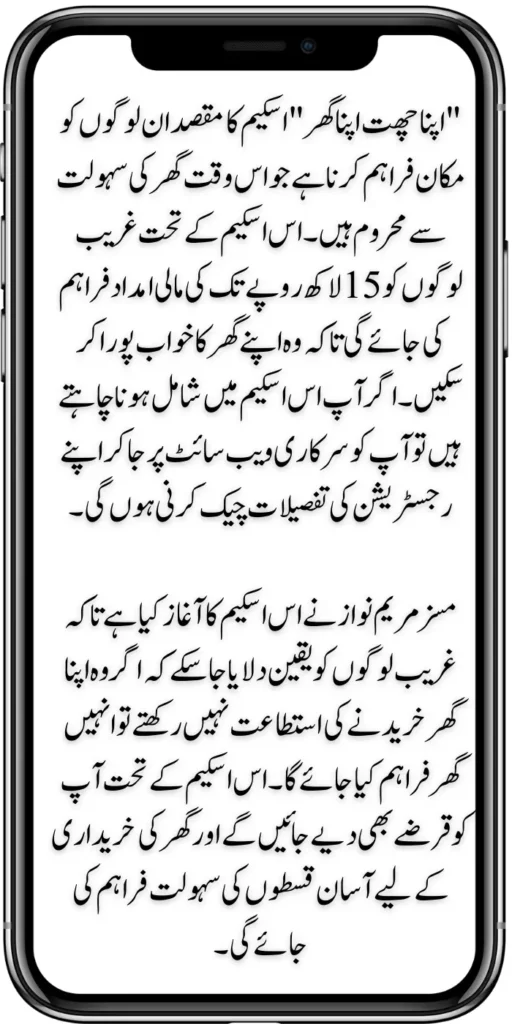 "اپنا چھت اپنا گھر" اسکیم کا مقصد ان لوگوں کو
مکان فراہم کرنا ہے جو اس وقت گھر کی سہولت
سے محروم ہیں۔ اس اسکیم کے تحت غریب
لوگوں کو 15 لاکھ روپے تک کی مالی امداد فراہم
کی جائے گی تاکہ وہ اپنے گھر کا خواب پورا کر
سکیں۔ اگر آپ اس اسکیم میں شامل ہونا چاہتے
ہیں تو آپ کو سرکاری ویب سائٹ پر جا کر اپنے
رجسٹریشن کی تفصیلات چیک کرنی ہوں گی۔
مسز مریم نواز نے اس اسکیم کا آغاز کیا ہے تاکہ
غریب لوگوں کو یقین دلایا جا سکے کہ اگر وہ اپنا
گھر خریدنے کی استطاعت نہیں رکھتے تو انہیں
گھر فراہم کیا جائے گا۔ اس اسکیم کے تحت آپ
کو قرضے بھی دیے جائیں گے اور گھر کی خریداری
کے لیے آسان قسطوں کی سہولت فراہم کی
جائے گی۔